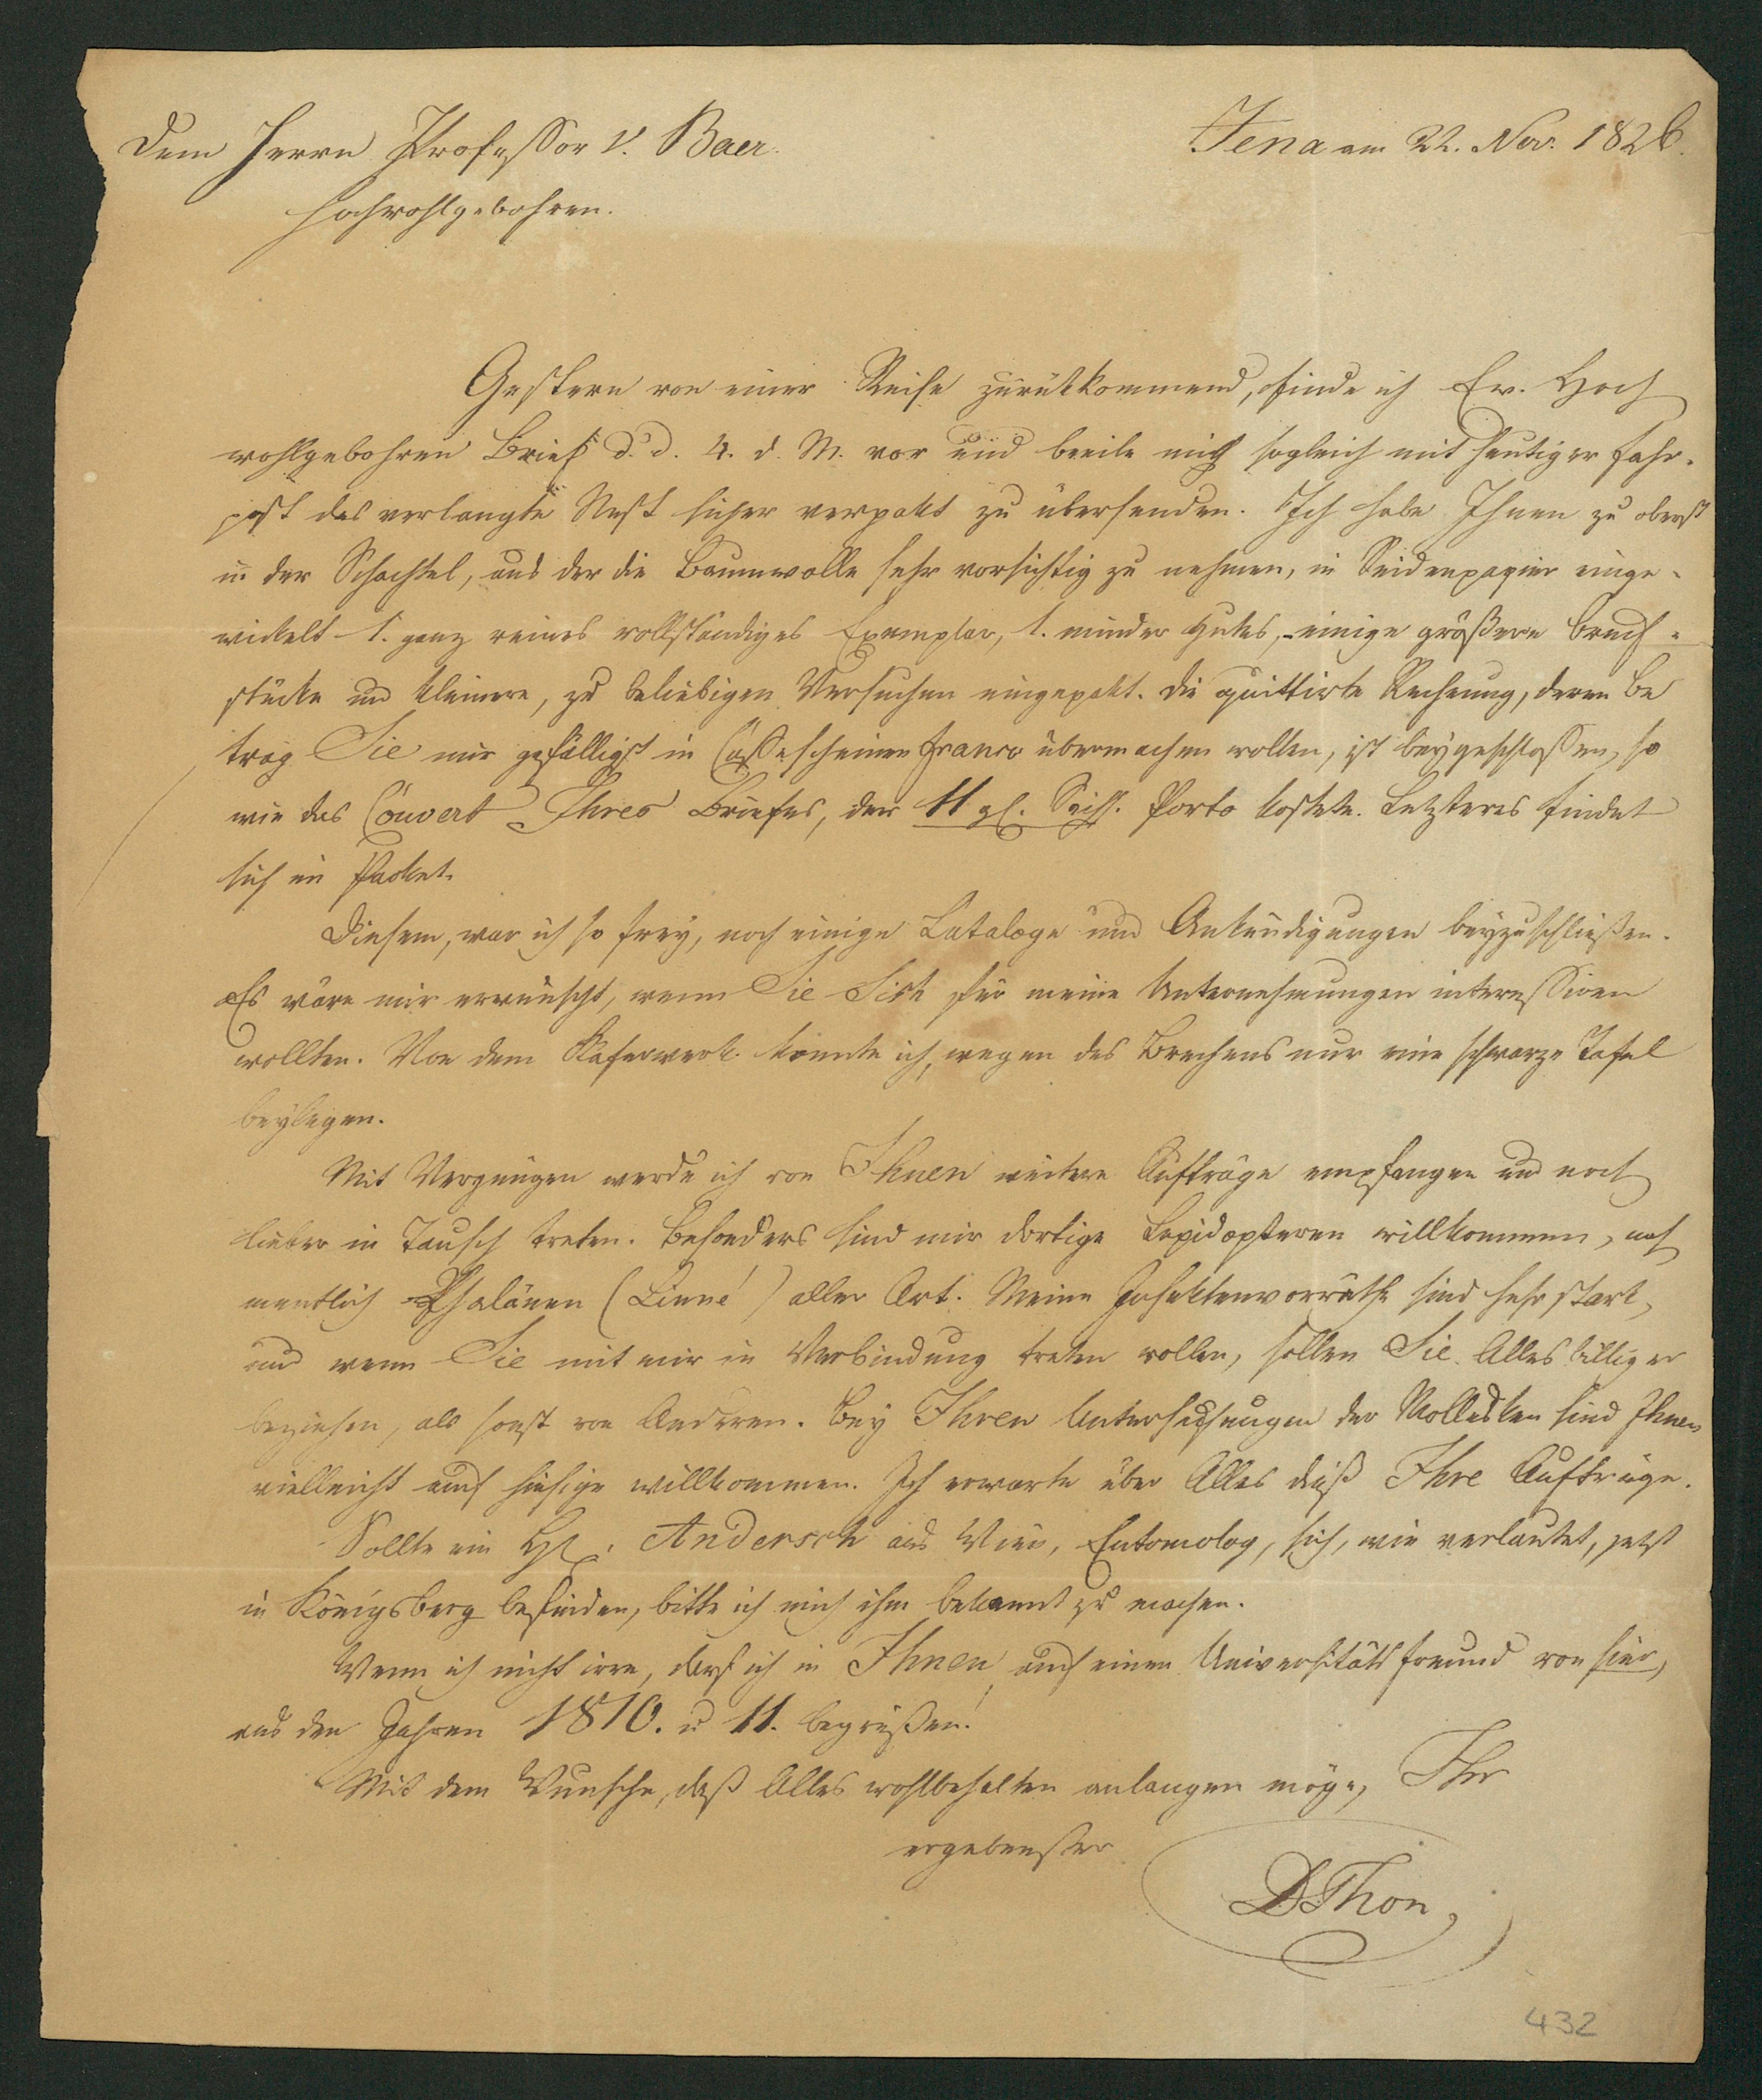 Dem Herrn Professor v. Baer.
Jena am 22. Nov. 1826.
Hochwohlgebohren.
Gestern von einer Reise zurükkommend, finde ich Ew. Hoch
wohlgebohren Brief d. d. 4. d. M. vor und beeile mich sogleich mit heutiger Fahr-
post das verlangte Nest sicher verpakt zu übersenden. Ich habe Ihnen zu oberst
in der Schachtel, aus der die Baumwolle sehr vorsichtig zu nehmen, in Seidenpapier einge-
wickelt 1. ganz reines vollständiges Exemplar, 1. minder gutes, einige größere Bruch-
stücke und kleinere, zu beliebigen Versuchen eingepakt. Die quittirte Rechnung, deren Be
trag Sie mir gefälligst in Cassescheinen franco übermachen wollen, ist beygeschlossen, so
wie das Couvert Ihres Briefes, der 11 gl. Porto kostete. Letzteres findet
sich im Packet.
Diesem, war ich so frey, noch einige Cataloge und Ankündigungen beyzuschließen.
Es wäre mir erwünscht, wenn Sie Sich für meine Unternehmungen interessiren
wollten. Von dem Käferwerk konnte ich, wegen des Brechens nur eine schwarze Tafel
beylegen.
Mit Vergnügen werde ich von Ihnen weitere Aufträge empfangen und noch
lieber in Tausch treten. Besonders sind mir dortige Lepidopteren willkommen, nah
mentlich Phalänen (Linné) aller Art. Meine Insektenvorräthe sind sehr stark,
und wenn Sie mit mir in Verbindung treten wollen, sollen Sie Alles billiger
beziehen, als sonst von Anderen. Bey Ihren Untersuchungen der Mollusken sind Ihnen
vielleicht auch hiesige willkommen. Ich erwarte über Alles dieß Ihre Aufträge.
Sollte ein H. Andersch aus Wien, Entomolog, sich, wie verlautet, jetzt
in Königsberg befinden, bitte ich mich ihm bekannt zu machen.
Wenn ich nicht irre, darf ich in Ihnen auch einen Universitätsfreund von hier,
aus den Jahren 1810. u 11. begrüßen!
Mit dem Wunsche, daß Alles wohlbehalten anlangen möge, Ihr
ergebenster
D Thon,
432